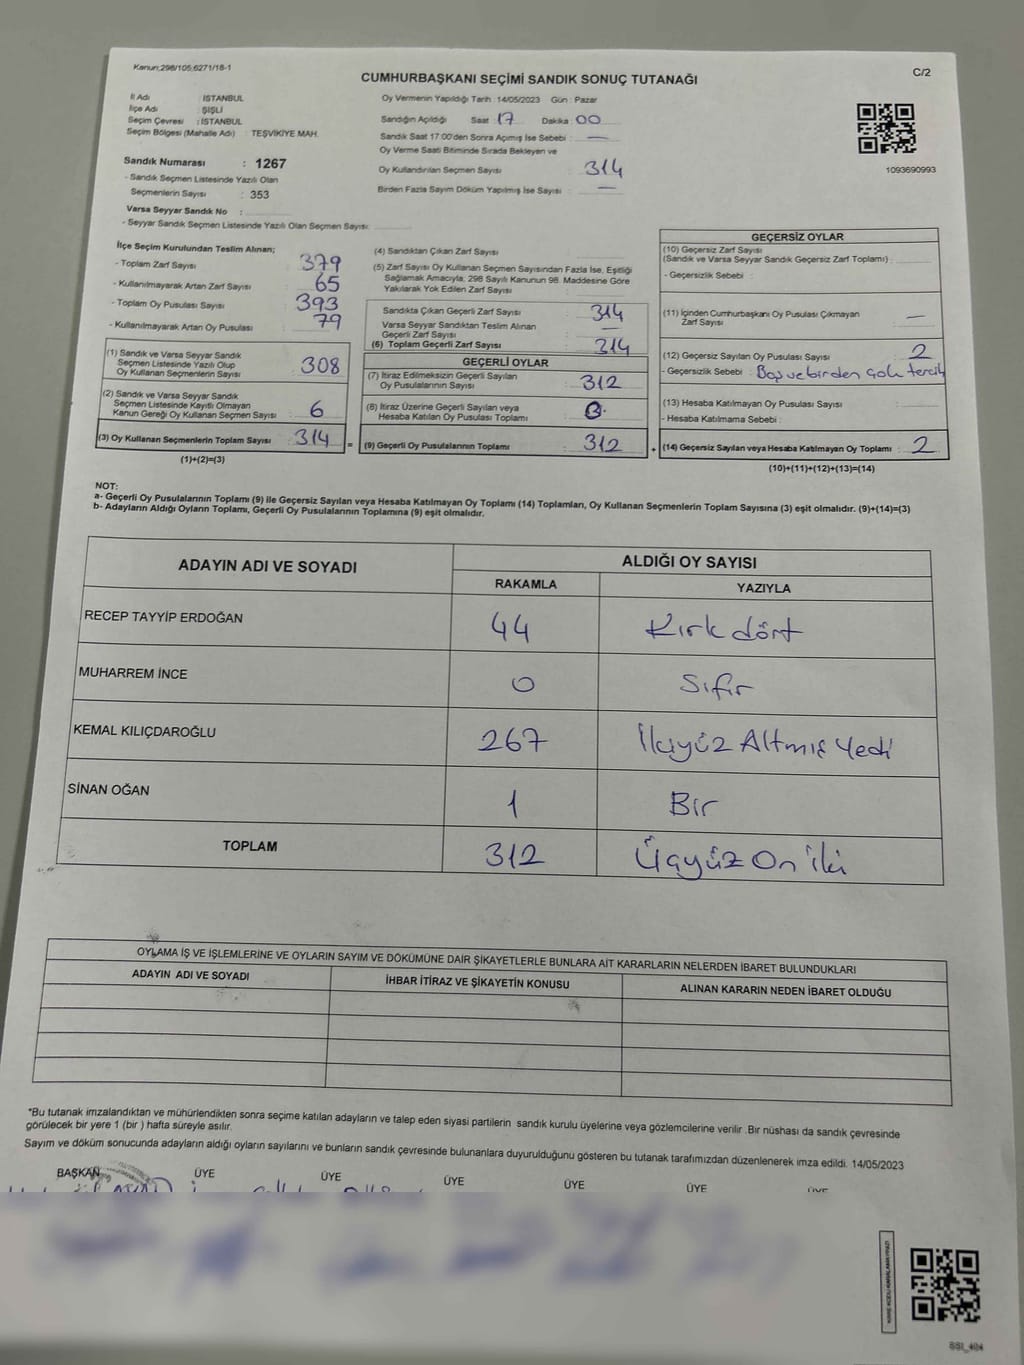 Kanun;298/105;6271/18-1
CUMHURBAŞKANI SEÇİMİ SANDIK SONUÇ TUTANAĞI
C/2
İl Adı : İSTANBUL
İlçe Adı : ŞİŞLİ
Seçim Çevresi : İSTANBUL
Seçim Bölgesi (Mahalle Adı) : TEŞVİKİYE MAH.
Sandık Numarası : 1267
- Sandık Seçmen Listesinde Yazılı Olan
Seçmenlerin Sayısı : 353
Varsa Seyyar Sandık No :
- Seyyar Sandık Seçmen Listesinde Yazılı Olan Seçmen Sayısı:
Oy Vermenin Yapıldığı Tarih : 14/05/2023 Gün : Pazar
Sandığın Açıldığı Saat : 17 Dakika : 00
Sandık Saat 17:00'den Sonra Açımış İse Sebebi : —
Oy Verme Saati Bitiminde Sırada Bekleyen ve
Oy Kullandırılan Seçmen Sayısı : 314
Birden Fazla Sayım Döküm Yapılmış İse Sayısı : —
1093690993
İlçe Seçim Kurulundan Teslim Alınan;
- Toplam Zarf Sayısı : 379
- Kullanılmayarak Artan Zarf Sayısı : 65
- Toplam Oy Pusulası Sayısı : 393
- Kullanılmayarak Artan Oy Pusulası : 79
(1) Sandık ve Varsa Seyyar Sandık
Seçmen Listesinde Yazılı Olup
Oy Kullanan Seçmenlerin Sayısı : 308
(2) Sandık ve Varsa Seyyar Sandık
Seçmen Listesinde Kayıtlı Olmayan
Kanun Gereği Oy Kullanan Seçmen Sayısı : 6
(3) Oy Kullanan Seçmenlerin Toplam Sayısı : 314 =
(1)+(2)=(3)
(4) Sandıktan Çıkan Zarf Sayısı :
(5) Zarf Sayısı Oy Kullanan Seçmen Sayısından Fazla İse, Eşitliği
Sağlamak Amacıyla, 298 Sayılı Kanunun 98. Maddesine Göre
Yakılarak Yok Edilen Zarf Sayısı :
Sandıkta Çıkan Geçerli Zarf Sayısı : 314
Varsa Seyyar Sandıktan Teslim Alınan
Geçerli Zarf Sayısı : —
(6) Toplam Geçerli Zarf Sayısı : 314
GEÇERLİ OYLAR
(7) İtiraz Edilmeksizin Geçerli Sayılan
Oy Pusulalarının Sayısı : 312
(8) İtiraz Üzerine Geçerli Sayılan veya
Hesaba Katılan Oy Pusulası Toplamı :
(9) Geçerli Oy Pusulalarının Toplamı : 312 +
GEÇERSİZ OYLAR
(10) Geçersiz Zarf Sayısı
(Sandık ve Varsa Seyyar Sandık Geçersiz Zarf Toplamı) :
- Geçersizlik Sebebi :
(11) İçinden Cumhurbaşkanı Oy Pusulası Çıkmayan
Zarf Sayısı : —
(12) Geçersiz Sayılan Oy Pusulası Sayısı : 2
- Geçersizlik Sebebi : Boş ve birden çok tercih
(13) Hesaba Katılmayan Oy Pusulası Sayısı :
- Hesaba Katılmama Sebebi :
(14) Geçersiz Sayılan veya Hesaba Katılmayan Oy Toplamı : 2
(10)+(11)+(12)+(13)=(14)
NOT:
a- Geçerli Oy Pusulalarının Toplamı (9) ile Geçersiz Sayılan veya Hesaba Katılmayan Oy Toplamı (14) Toplamları, Oy Kullanan Seçmenlerin Toplam Sayısına (3) eşit olmalıdır. (9)+(14)=(3)
b- Adayların Aldığı Oyların Toplamı, Geçerli Oy Pusulalarının Toplamına (9) eşit olmalıdır.
ADAYIN ADI VE SOYADI
ALDIĞI OY SAYISI
RAKAMLA YAZIYLA
RECEP TAYYİP ERDOĞAN 44 Kırk dört
MUHARREM İNCE 0 Sıfır
KEMAL KILIÇDAROĞLU 267 İkiyüz Altmış Yedi
SİNAN OĞAN 1 Bir
TOPLAM 312 Üçyüz On İki
OYLAMA İŞ VE İŞLEMLERİNE VE OYLARIN SAYIM VE DÖKÜMÜNE DAİR ŞİKAYETLERLE BUNLARA AİT KARARLARIN NELERDEN İBARET BULUNDUKLARI
ADAYIN ADI VE SOYADI İHBAR İTİRAZ VE ŞİKAYETİN KONUSU ALINAN KARARIN NEDEN İBARET OLDUĞU
*Bu tutanak imzalandıktan ve mühürlendikten sonra seçime katılan adayların ve talep eden siyasi partilerin sandık kurulu üyelerine veya gözlemcilerine verilir .Bir nüshası da sandık çevresinde
görülecek bir yere 1 (bir ) hafta süreyle asılır.
Sayım ve döküm sonucunda adayların aldığı oyların sayılarını ve bunların sandık çevresinde bulunanlara duyurulduğunu gösteren bu tutanak tarafımızdan düzenlenerek imza edildi. 14/05/2023
BAŞKAN ÜYE ÜYE ÜYE ÜYE ÜYE ÜYE
SSI_404